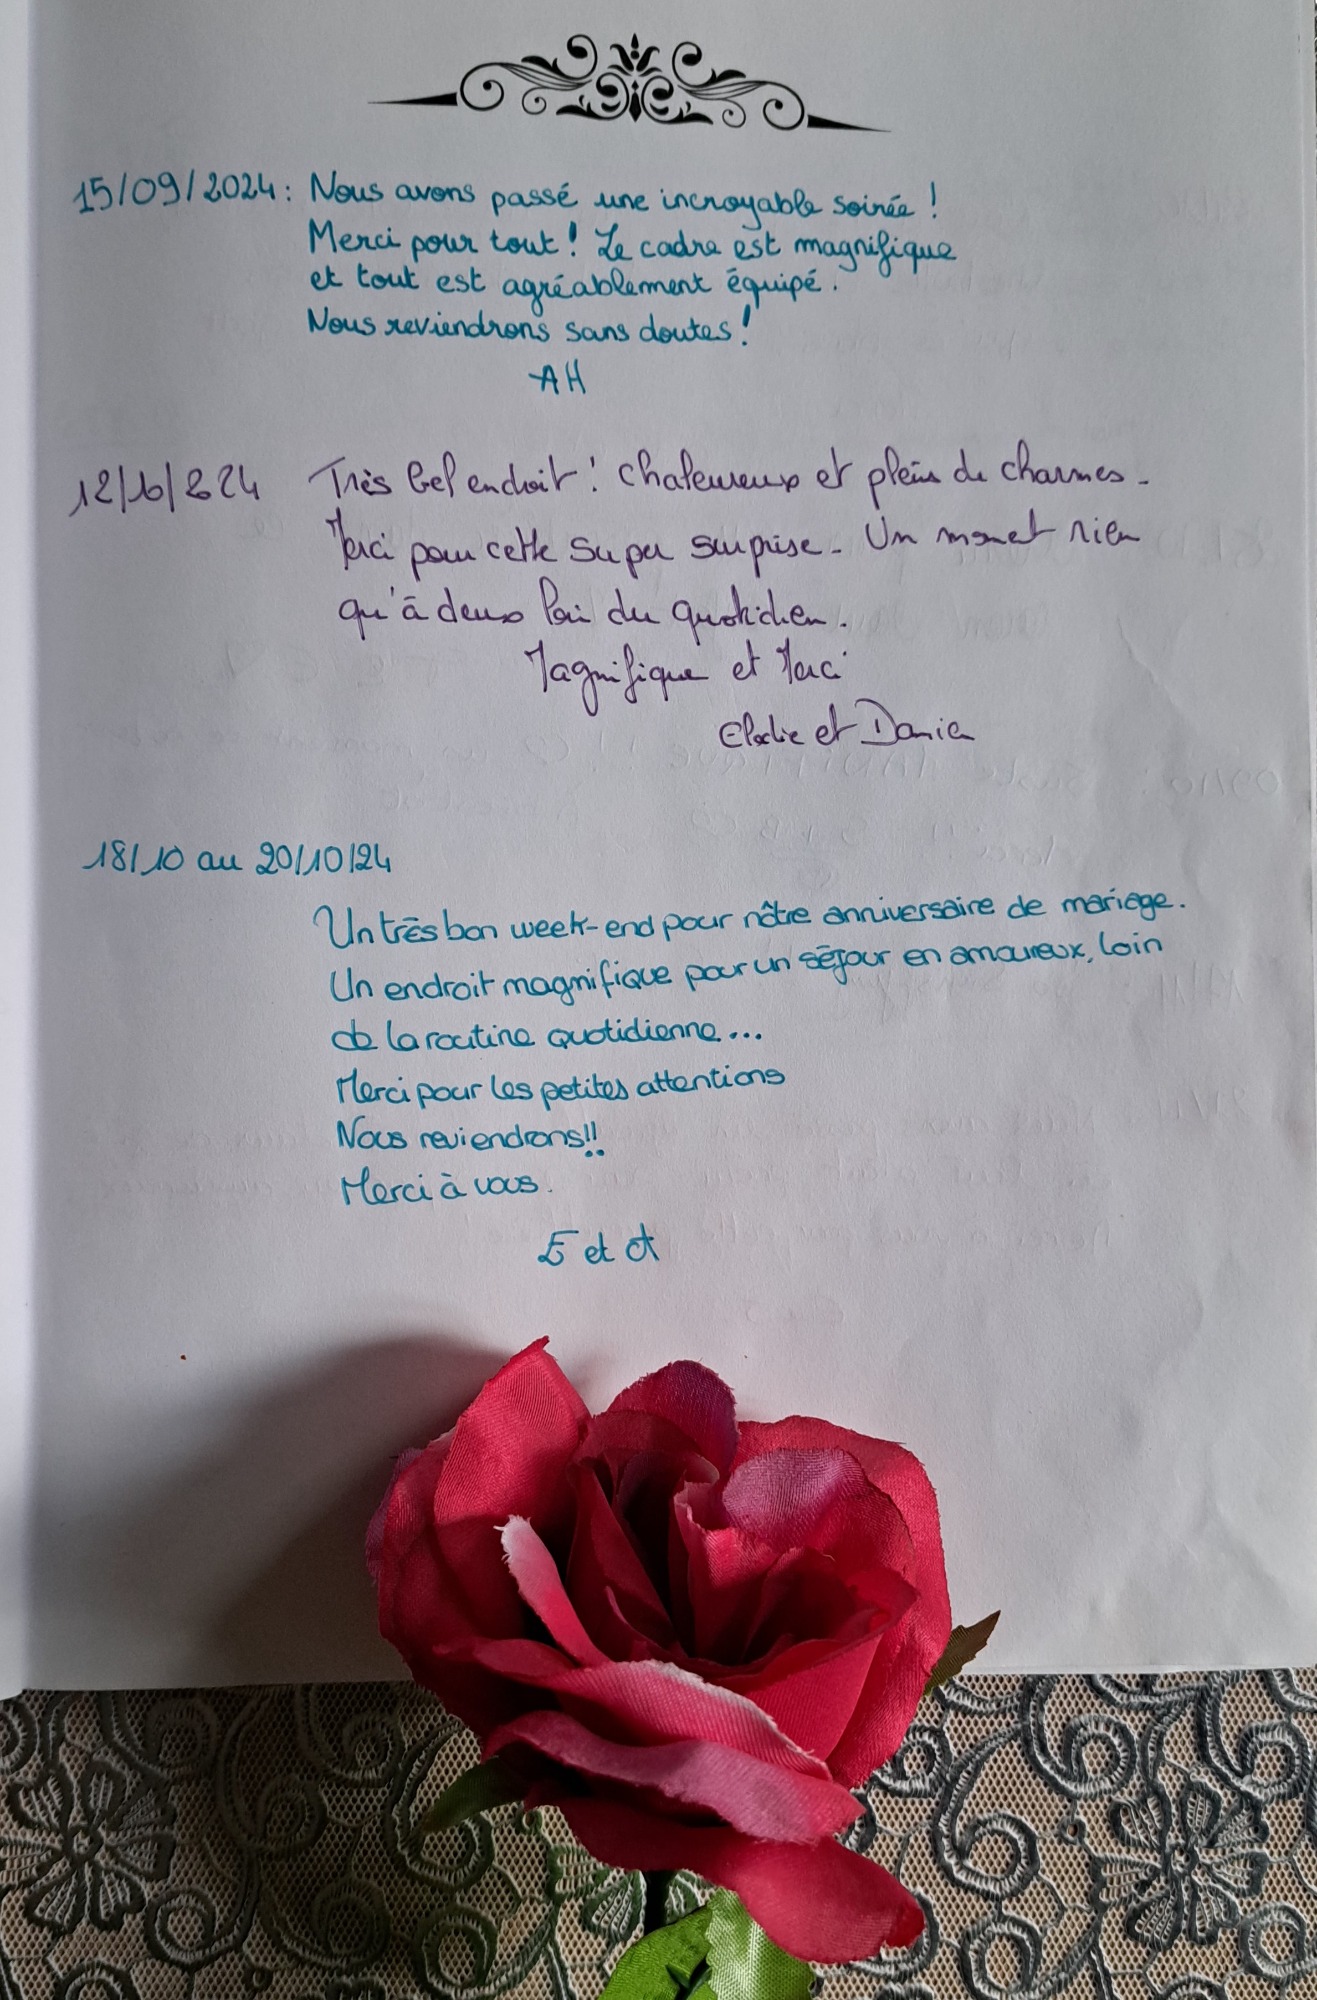 15/09/2024: Nous avons passé une incroyable soirée !
Merci pour tout ! Le cadre est magnifique
et tout est agréablement équipé.
Nous reviendrons sans doutes !
AH
12/10/2024 Très bel endroit ! Chaleureux et plein de charmes.
Merci pour cette super surprise. Un moment rien
qu'à deux loin du quotidien.
Magnifique et Merci
Elodie et Damien
18/10 au 20/10/24
Un très bon week-end pour nôtre anniversaire de mariage.
Un endroit magnifique pour un séjour en amoureux, loin
de la routine quotidienne...
Merci pour les petites attentions
Nous reviendrons!!
Merci à vous.
E et A